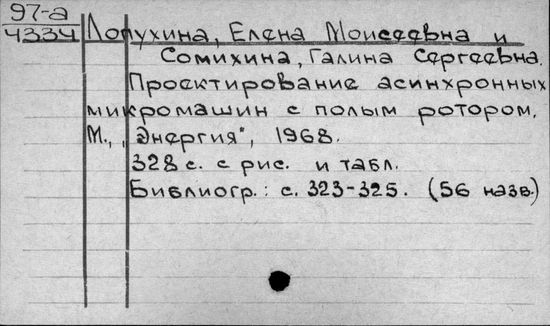 97-а
4334
Лопухина, Елена Моисеевна и
Сомихина, Галина Сергеевна.
Проектирование асинхронных
микромашин с полым ротором.
М., „Энергия", 1968.
328 с. с рис. и табл.
Библиогр.: с. 323-325. (56 назв.)